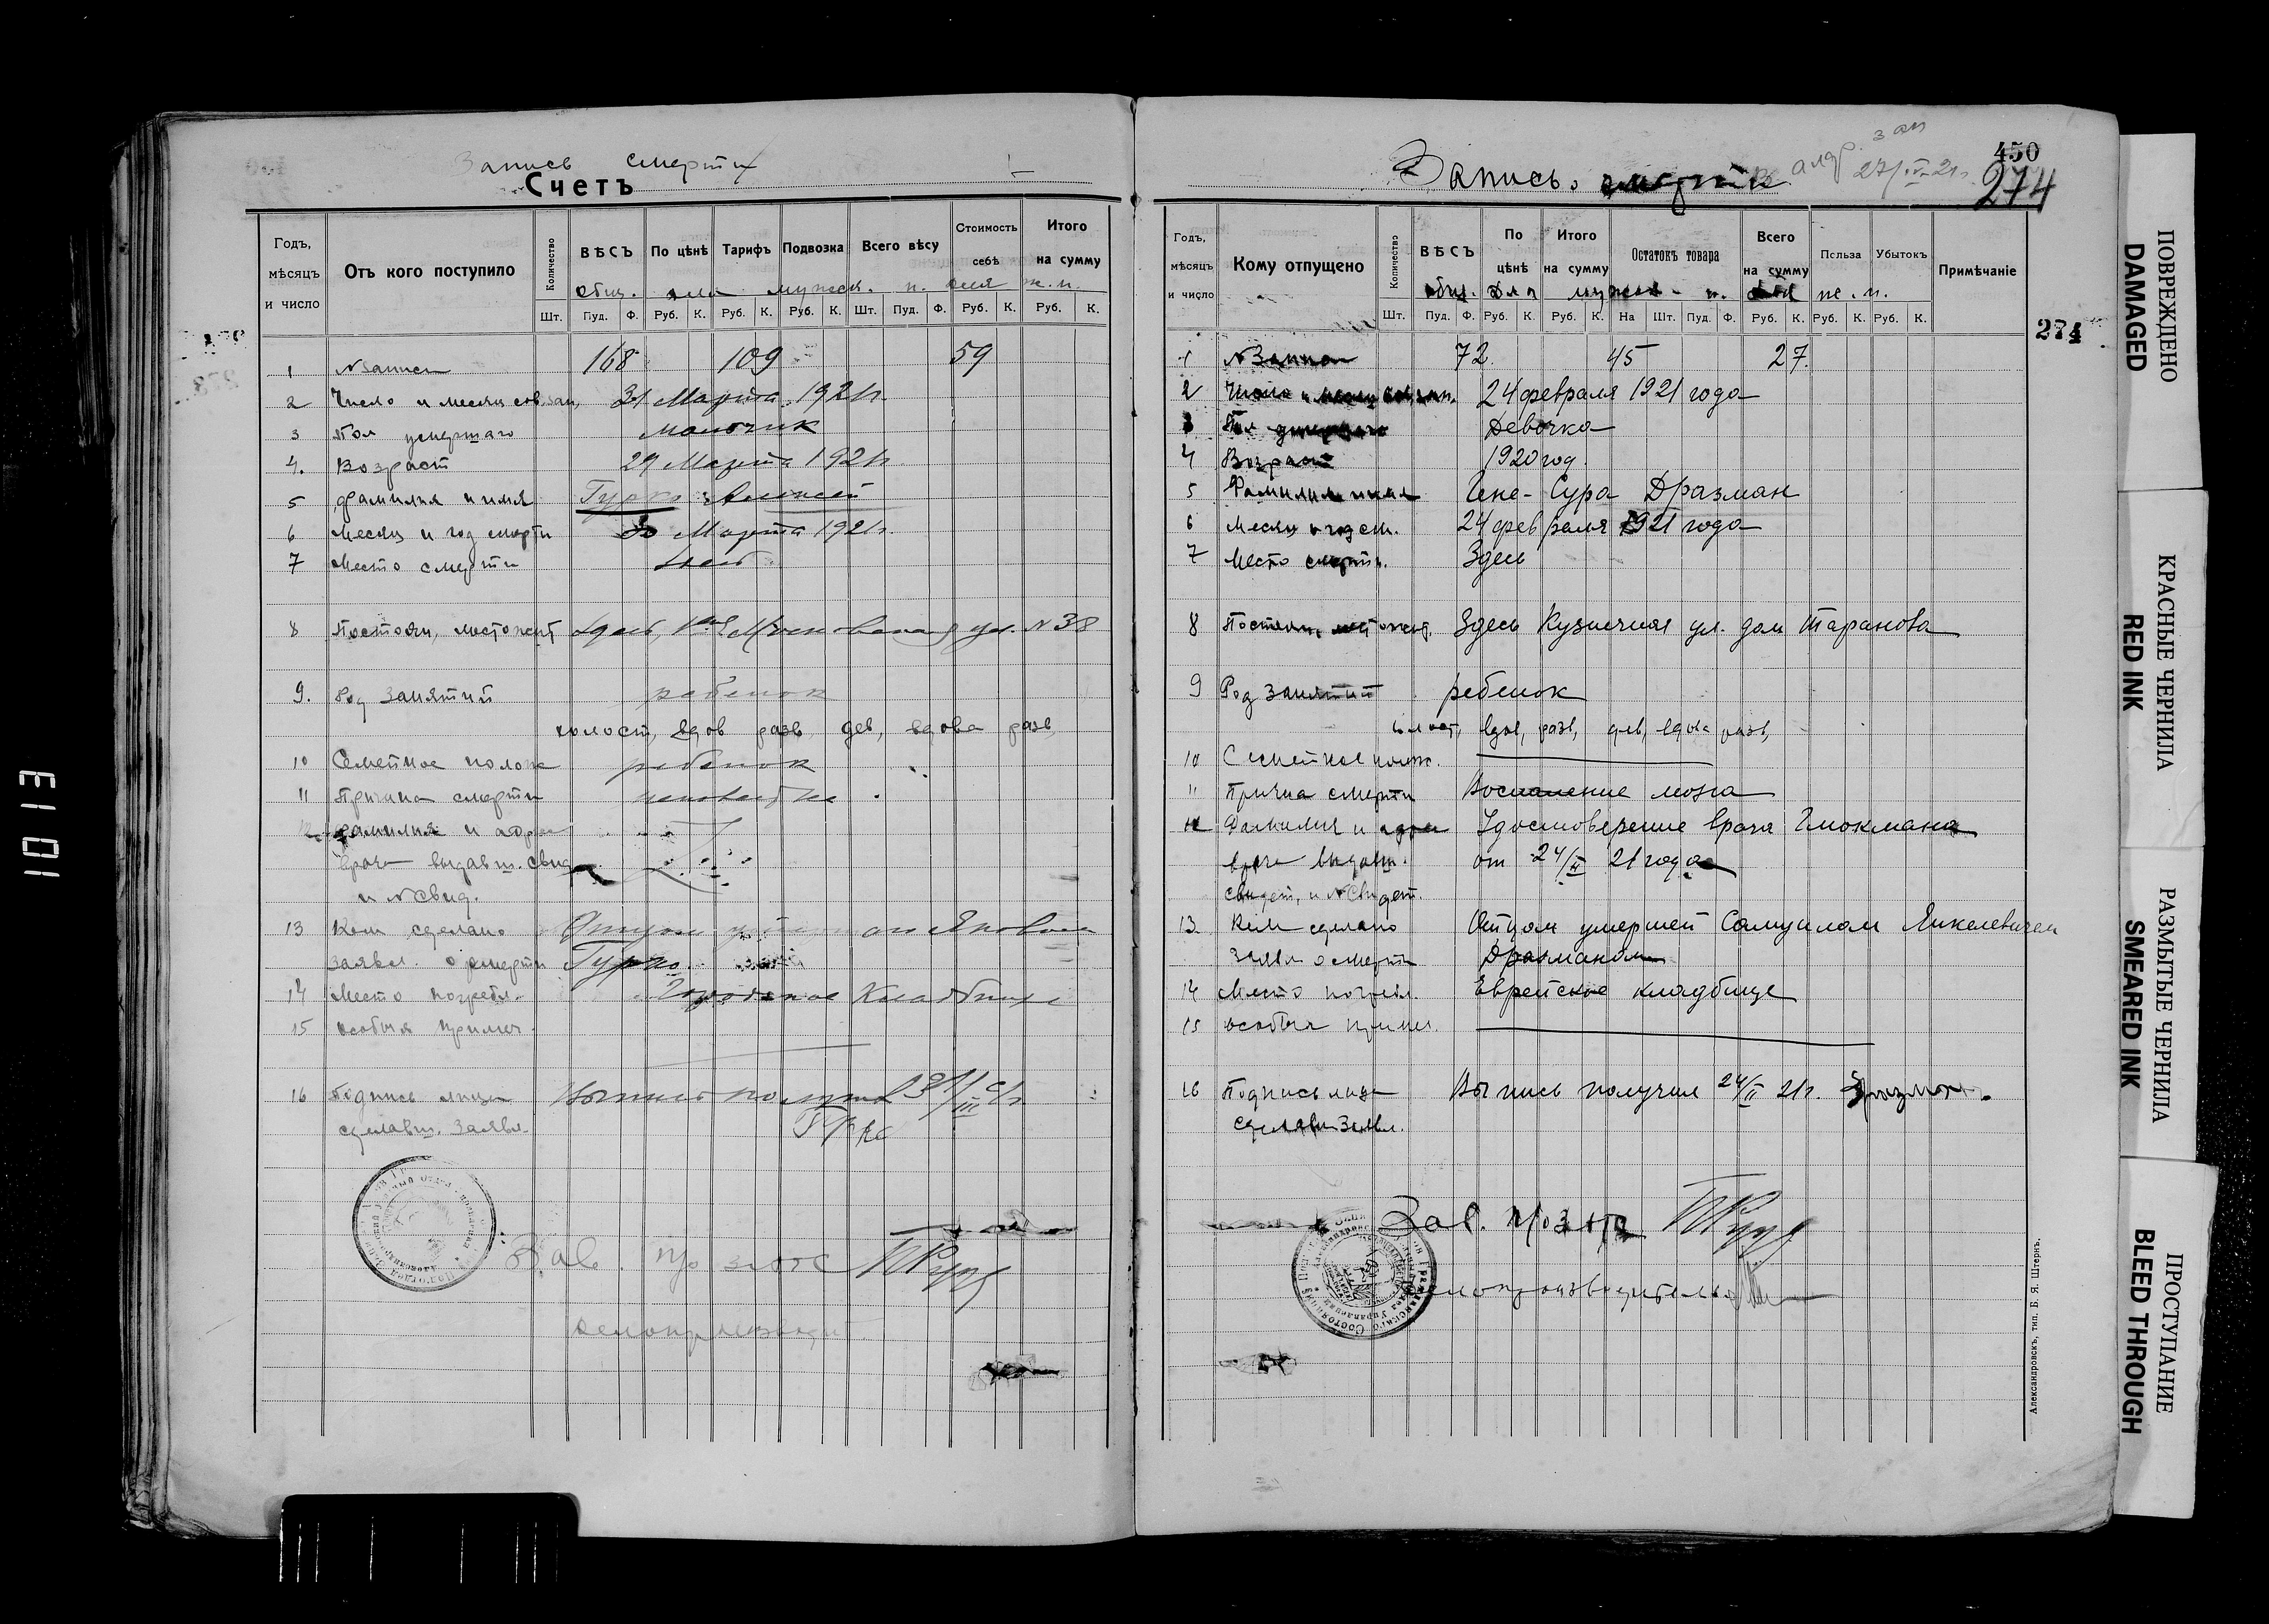 Запись смерти
Счетъ
Годъ, мѣсяцъ и число
Отъ кого поступило
Количество
ВѢСЪ
По цѣнѣ
Тарифъ
Подвозка
Всего вѣсу
Стоимость себѣ
Итого на сумму
общ. для мужск. п. для ж. п.
Шт. Пуд. Ф. Руб. К. Руб. К. Руб. К. Шт. Пуд. Ф. Руб. К. Руб. К.
1 N записи 168 109 59
2 Число и месяц сов. зап. 31 Марта 1921г.
3 Пол умершаго мальчик
4. Возраст 29 Марта 1921г.
5 Фамилия и имя Гурко Алексей
6 Месяц и год смерти 30 Марта 1921г.
7 Место смерти Здесь
8 Постоян. местожит Здесь, ул. N 38
9. Род занятий ребенок
холост, вдов разв, дев, вдова разв,
10 Семейное полож ребенок
11 Причина смерти неизвестна
12 Фамилия и адрес
врача выдавш. свид
и N свид.
13 Кем сделано Отцом
заявл. о смерти Гурко
14 Место погребл. Городское Кладбище
15 особыя примеч.
16 Подпись лица Выпись получил 31/III 21г
сделавш. заявл. Гурко
Зав. п/о загс
делопроизводит.
Запись смерти
зап
27/IV 21г
450
274
Годъ, мѣсяцъ и число
Кому отпущено
Количество
ВѢСЪ
По цѣнѣ
Итого на сумму
Остатокъ товара
Всего на сумму
Польза
Убытокъ
Примѣчаніе
общ. для мужск. п. для ж. п.
Шт. Пуд. Ф. Руб. К. Руб. К. На Шт. Пуд. Ф. Руб. К. Руб. К. Руб. К.
274
1 N Записи 72. 45 27.
2 Число и месяц сов. зап. 24 февраля 1921 года
3 Пол умершаго Девочка
4 Возраст 1920 год.
5 Фамилия и имя Сура Дразман
6 Месяц и год см. 24 февраля 1921 года
7 Место смерти. Здесь
8 Постоян. местожит. Здесь Кузнечная ул. дом Таранова
9 Род занятий ребенок
холост, вдов, разв, дев, вдова разв,
10 Семейное полож.
11 Причина смерти Воспаление мозга
12 Фамилия и адрес Удостоверение врача Глюкмана
врача выдавш. от 24/II 21 года
свидет. и N свидет.
13. Кем сделано Отцом умершей Самуилом Янкелевичем
заявл о смерти Дразманом
14 Место погребл. Еврейское кладбище
15 особыя примеч.
16 Подпись лица Выпись получил 24/II 21г. Дразман.
сделавш заявл.
Зав. п/о загс
Делопроизводитель
Александровскъ, тип. Б. Я. Штернъ.
ПОВРЕЖДЕНО
DAMAGED
КРАСНЫЕ ЧЕРНИЛА
RED INK
РАЗМЫТЫЕ ЧЕРНИЛА
SMEARED INK
ПРОСТУПАНИЕ
BLEED THROUGH
1013